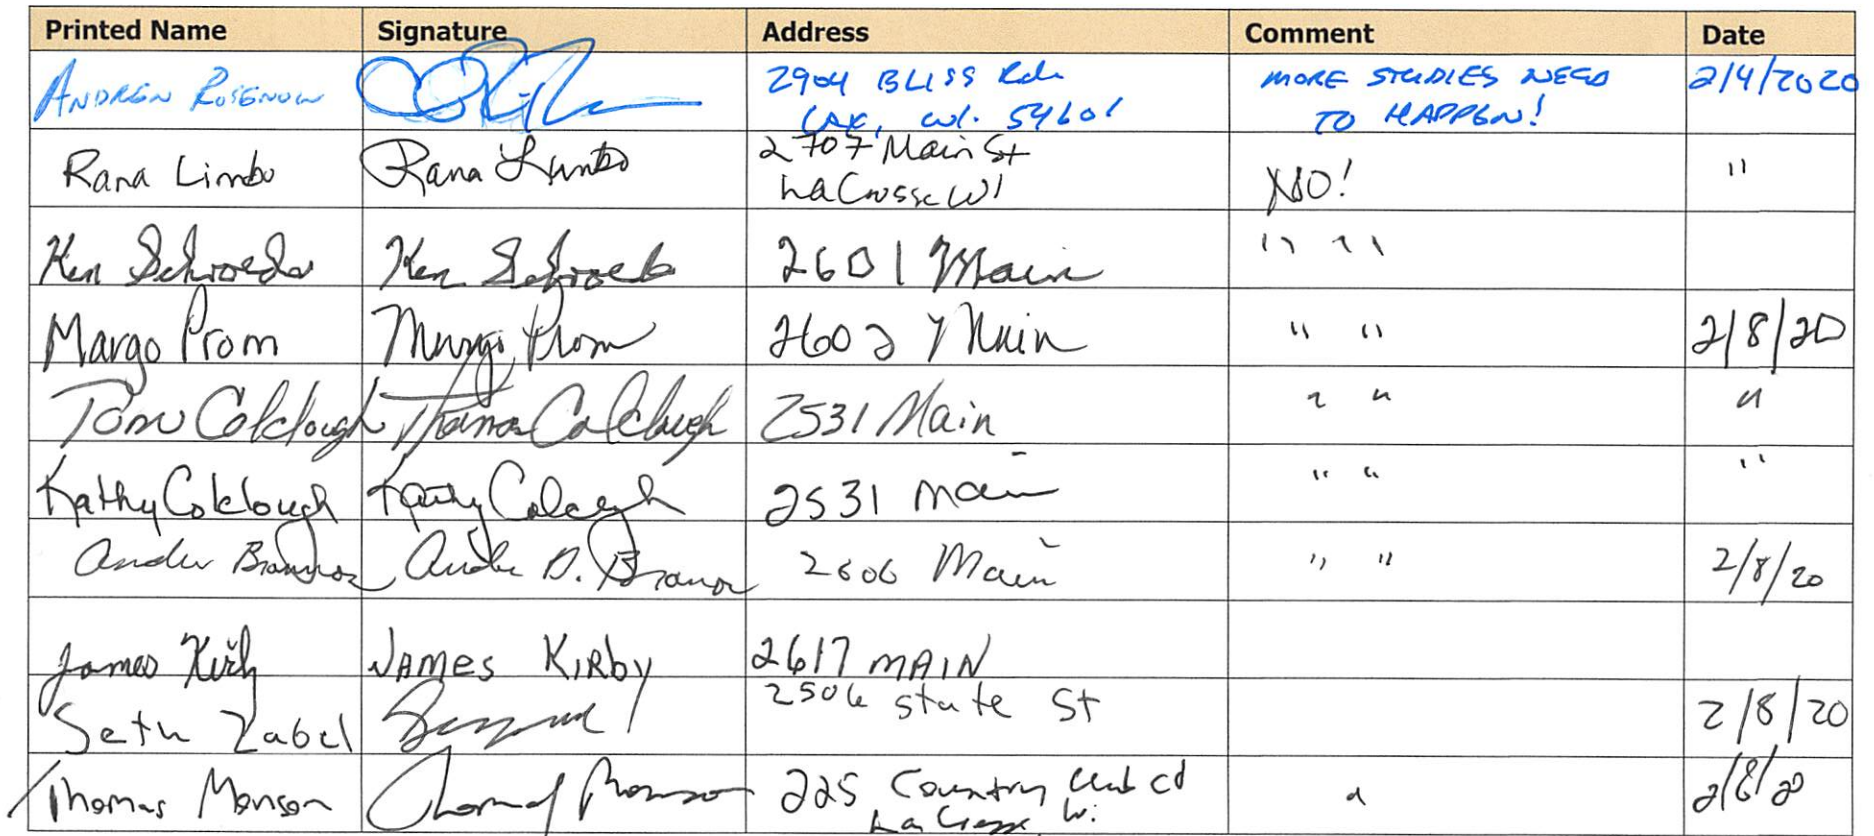 Printed Name Signature Address Comment Date
ANDREW ROSENOW 2904 BLISS Rd. MORE STUDIES NEED 2/4/2020
LAX, WI. 54601 TO HAPPEN!
Rana Limbo Rana Limbo 2707 Main St NO! "
La Crosse WI
Ken Schroeder Ken Schroeder 2601 Main " "
Margo Prom Margo Prom 2602 Main " " 2/8/20
Tom Colclough Thomas Colclough 2531 Main " " "
Kathy Colclough Kathy Colclough 2531 Main " " "
2606 Main " " 2/8/20
James Kirby JAMES KIRBY 2617 MAIN
Seth Zabel 2506 State St 2/8/20
Thomas Monson Thomas Monson 225 Country Club Ct " 2/8/20
La Crosse Wi.